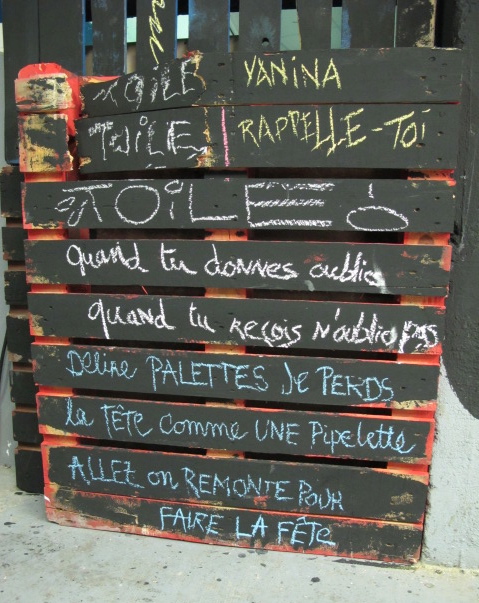 TOILE YANINA
TOILE RAPPELLE-TOI
TOILE
quand tu donnes oublie
quand tu reçois n'oublie pas
Délire PALETTES Je PERDS
la TÊTE comme UNE Pipelette
ALLEZ on REMONTE POUR
FAIRE LA FÊTE